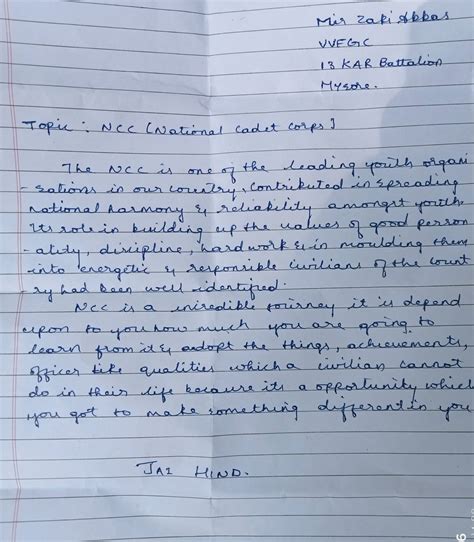 Mir Zaki Abbas
VVFGC
13 KAR Battalion
Mysore.
Topic : NCC [National Cadet Corps]
The NCC is one of the leading youth organi
- sations in our country, contributed in spreading
national harmony & reliability amongst youth.
Its role in building up the values of good person
- ality, discipline, hard work & in moulding them
into energetic & responsible civilians of the count
- ry had been well identified.
NCC is a incredible journey it is depend
upon to you how much you are going to
learn from it & adopt the things, achievements,
officer like qualities which a civilian cannot
do in their life because its a opportunity which
you got to make something different in you
JAI HIND.